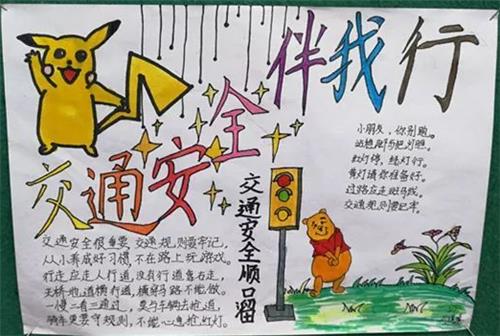 交通安全
伴我行
小朋友，你别跑。
红灯停，绿灯行。
黄灯请你准备好。
过路应走斑马线。
交通规则要记牢。
交通安全顺口溜
交通安全很重要，交通规则要牢记，
从小养成好习惯，不在路上玩游戏。
行走应走人行道，没有行道靠右走，
天桥地道横行道，横穿马路不能做。
一慢二看三通过，莫与车辆去抢道
骑车更要守规则，不能心急抢红灯。